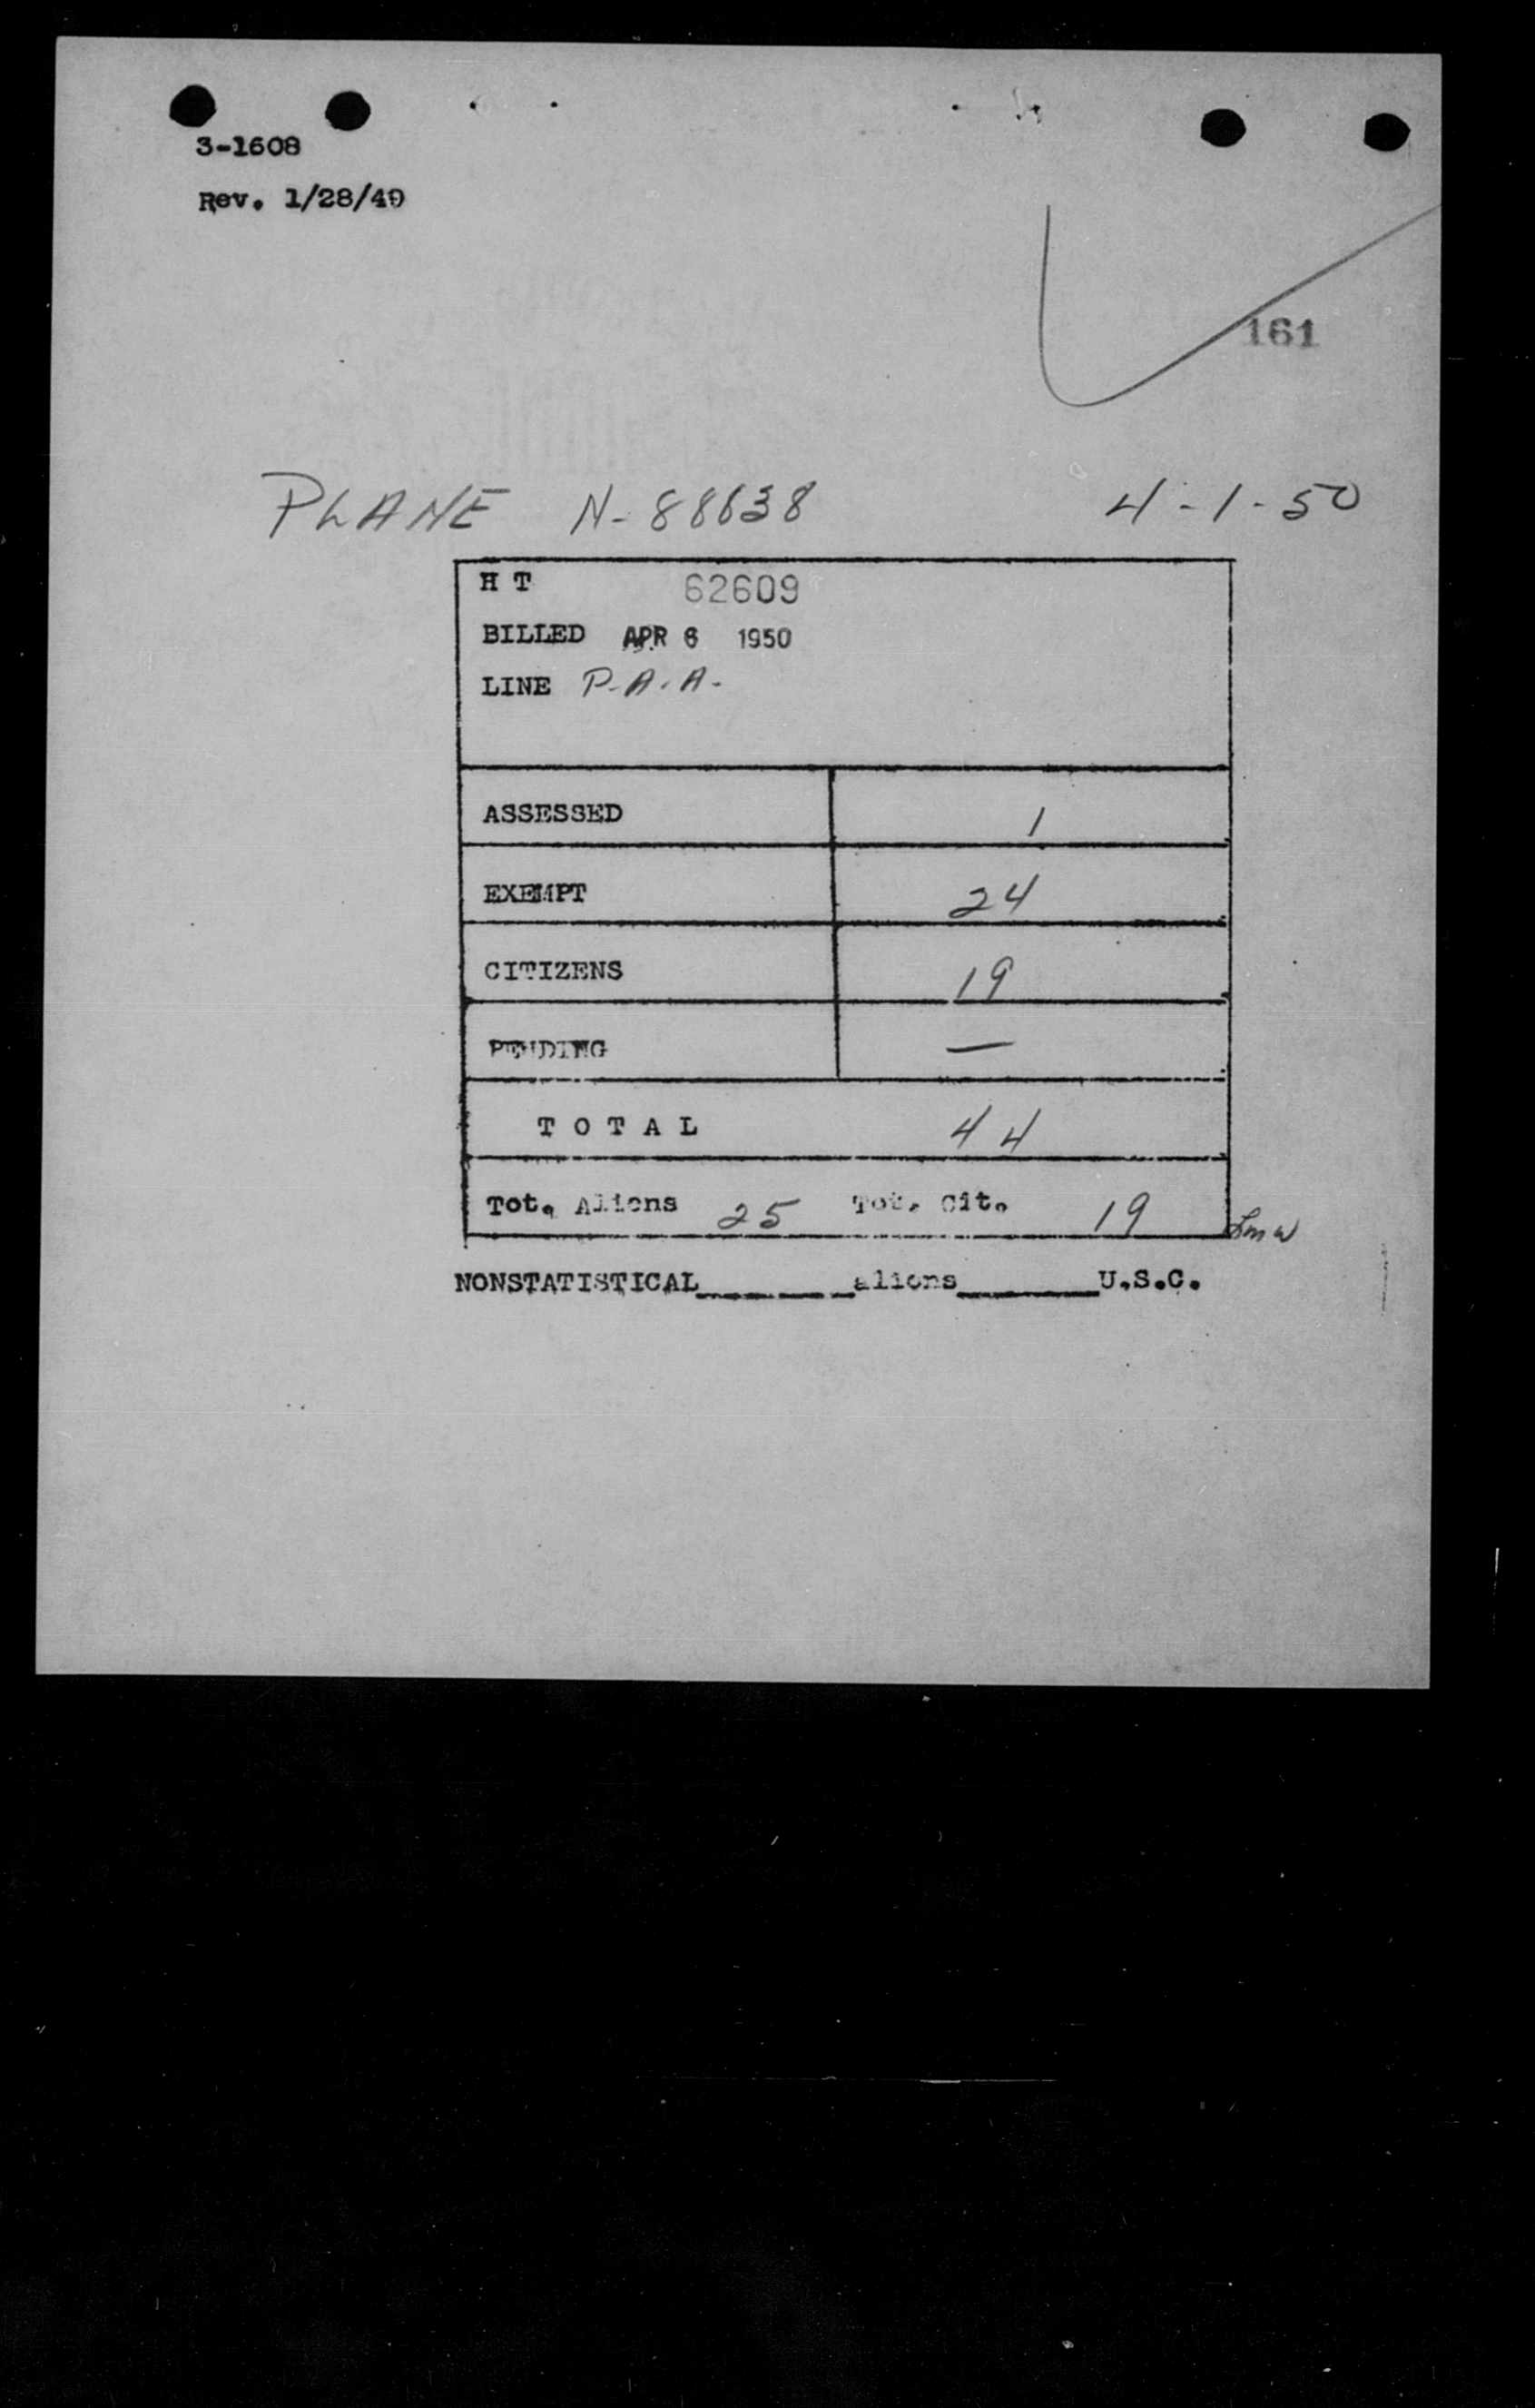 3-1608
Rev. 1/28/49
161
PLANE N-88638 4-1-50
H T 62609
BILLED APR 6 1950
LINE P.A.A.
ASSESSED 1
EXEMPT 24
CITIZENS 19
PENDING —
T O T A L 44
Tot. Aliens 25 Tot. Cit. 19
NONSTATISTICAL______aliens______U.S.C.